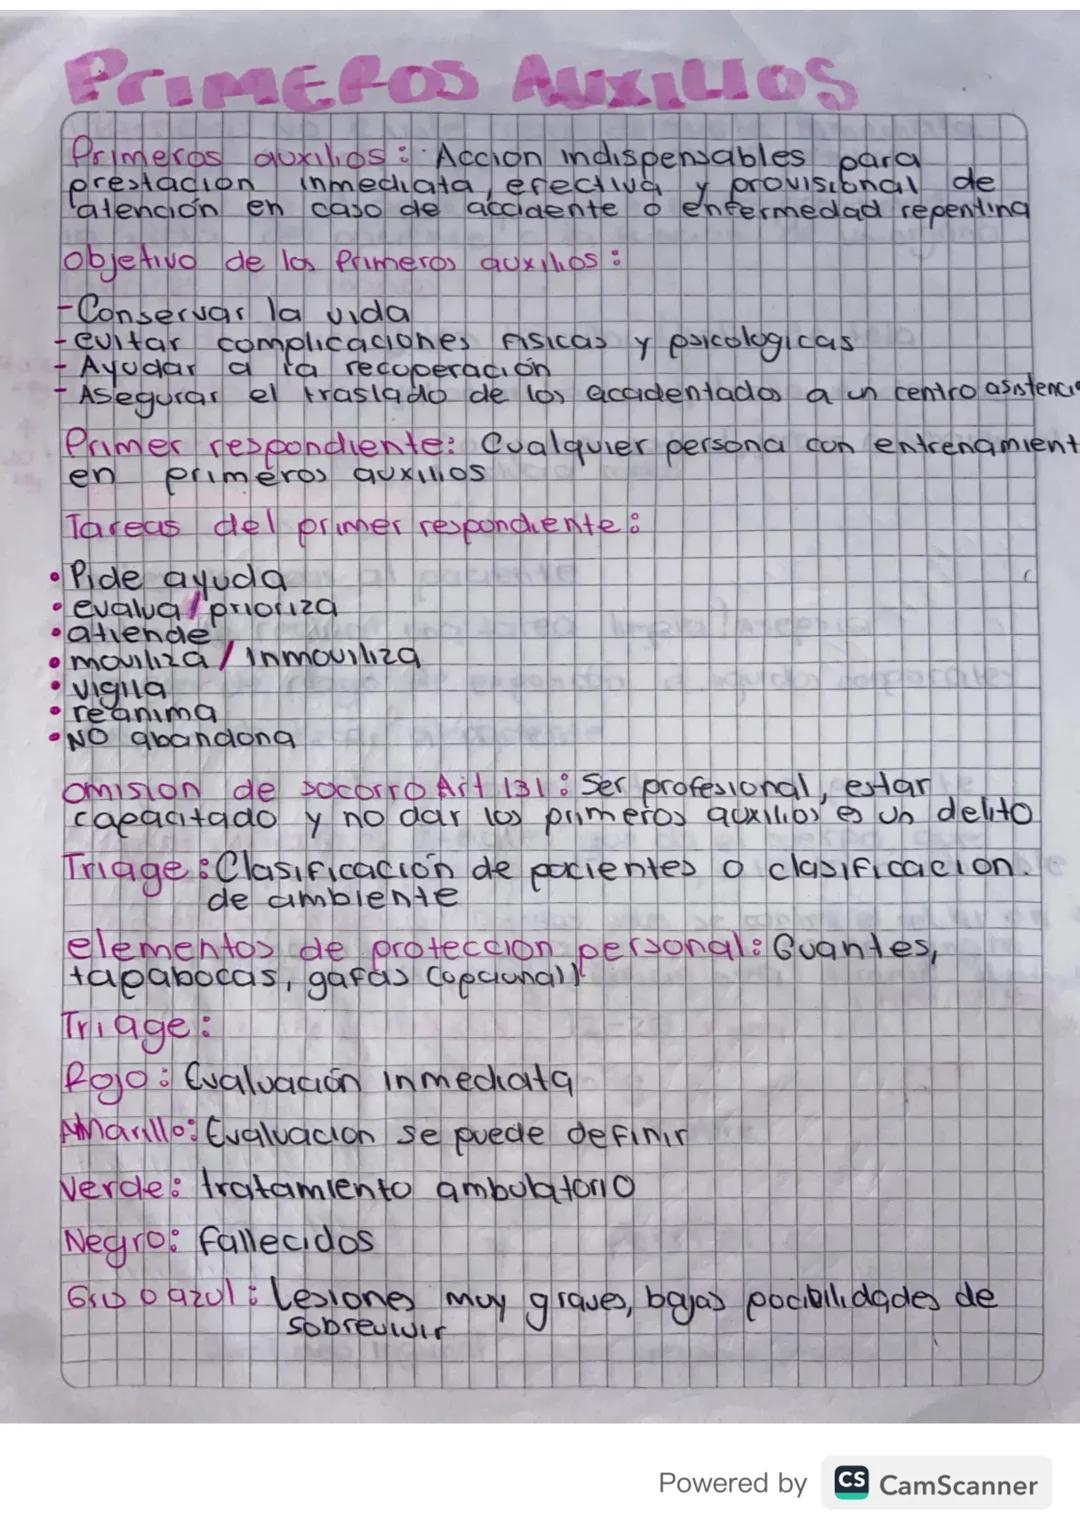 PrIMEROS AUXILIOS
Primeros auxilios: Accion indispensables para
prestacion inmediata, efectiva y provisional de
atención en caso de accidente o enfermedad repentina
objetivo de los Primeros auxilios:
-Conservar la vida
-evitar complicaciones fisicas y psicologicas
- Ayudar a la recuperación
- Asegurar el traslado de los accidentados a un centro asistencia
Primer respondiente: Cualquier persona con entrenamient
en primeros auxilios
Tareas del primer respondiente:
• Pide ayuda
• evalua/prioriza
• atiende
• moviliza/inmoviliza
• vigila
• reanima
• NO abandona
omision de socorro Art 131: Ser profesional, estar
capacitado y no dar los primeros auxilios es un delito
Triage: Clasificación de pacientes o clasificacion.
de ambiente
elementos de proteccion personal: Guantes,
tapabocas, gafas (opcional)
Triage:
Rojo: Evaluación inmediata
Amarillo: Evaluacion se puede definir
Verde: tratamiento ambulatorio
Negro: fallecidos
Gris o azul: Lesiones muy graves, bajas pocibilidades de
sobrevivir
Powered by CS CamScanner